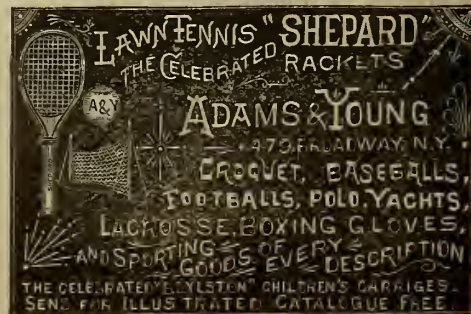 LAWN TENNIS "SHEPARD"
THE CELEBRATED RACKETS
A&Y
ADAMS & YOUNG
479, BROADWAY, N.Y.
CROQUET, BASEBALLS,
FOOTBALLS, POLO, YACHTS,
LACROSSE, BOXING GLOVES,
AND SPORTING GOODS OF EVERY DESCRIPTION
THE CELEBRATED CHILDREN'S CARRIGES.
SEND FOR ILLUSTRATED CATALOGUE FREE.